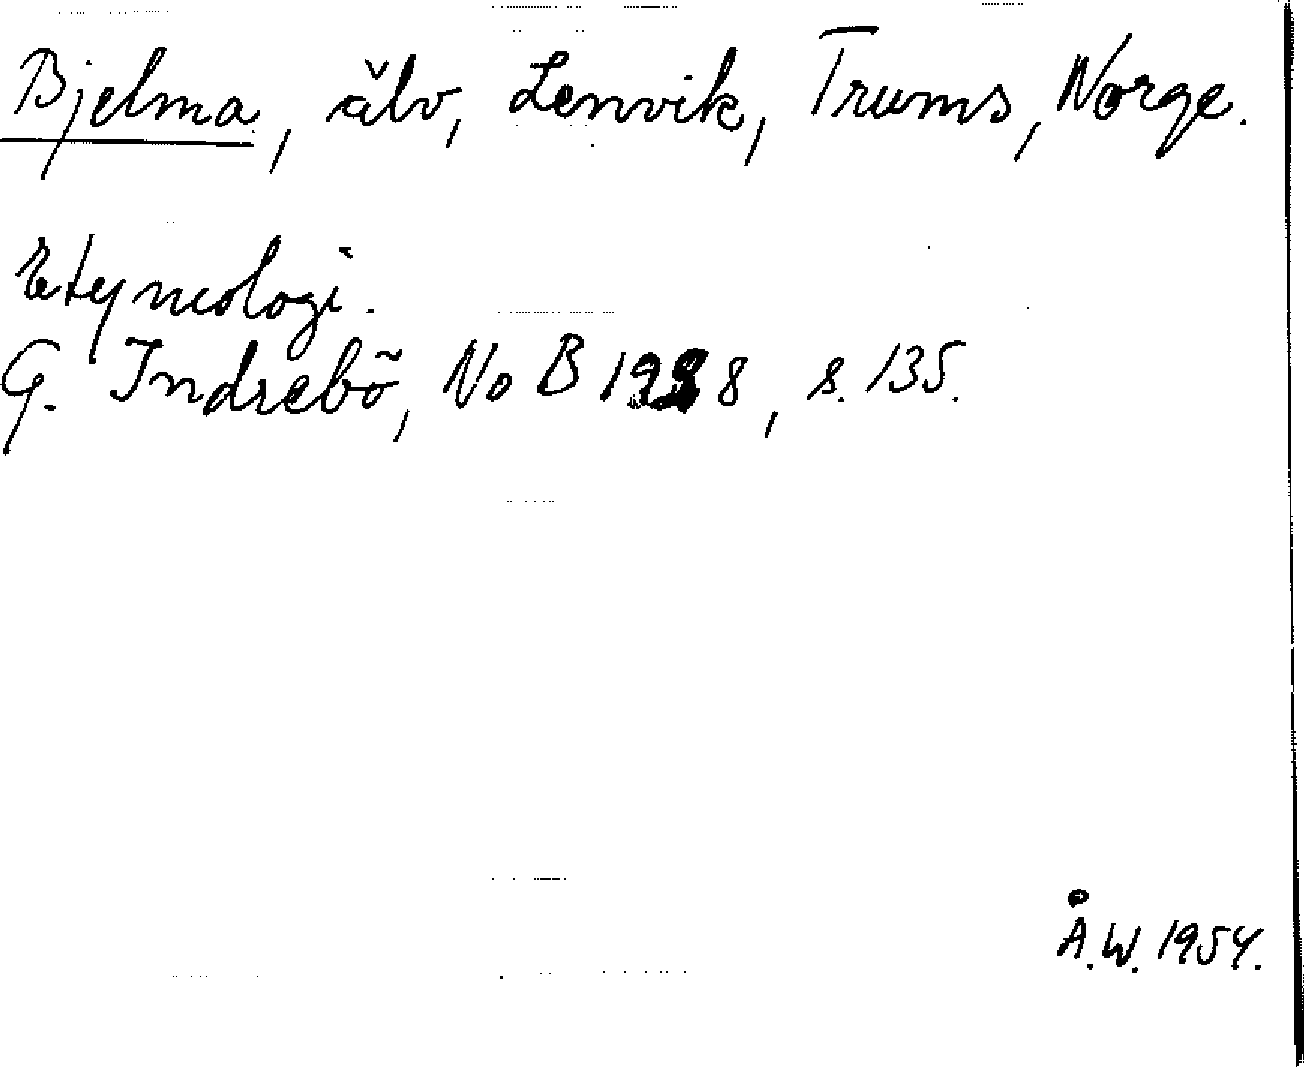 Bjelma, älv, Lenvik, Trums, Norge.
Etymologi.
G. Indrebö, No B 1928, s. 135.
Å.W. 1954.